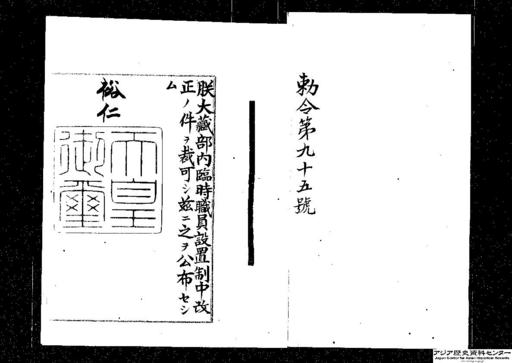 勅令第九十五號
朕大藏部内臨時職員設置制中改
正ノ件ヲ裁可シ茲ニ之ヲ公布セシ
ム
裕仁
天皇
御璽
アジア歴史資料センター
Japan Center for Asian Historical Records